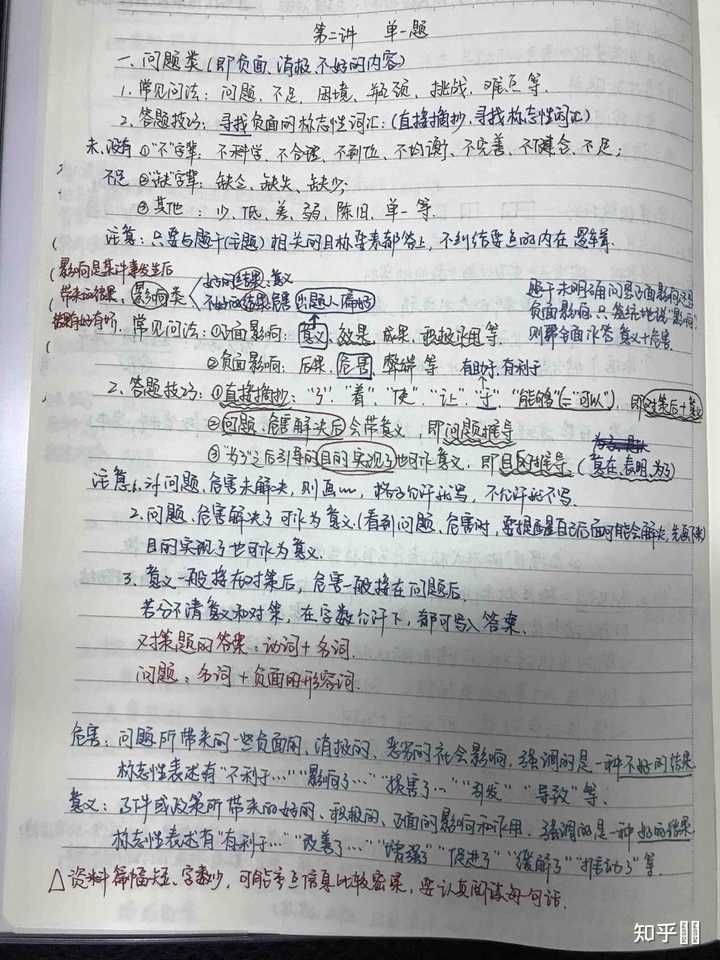 第二讲 单一题
一、问题类(即负面、消极、不好的内容)
1. 常见问法:问题、不足、困境、瓶颈、挑战、难点等.
2. 答题技巧:寻找负面的标志性词汇:(直接摘抄、寻找标志性词汇)
未、没有 ①"不"字辈:不科学、不合理、不到位、不均衡、不完善、不健全、不足;
不足 ②"缺"字辈:缺乏、缺失、缺少;
③其他:少、低、差、弱、陈旧、单一等.
注意:只要与题干(主题)相关的目标要素都答上,不纠结要点的内在逻辑等.
影响是某件事发生后
带来的结果,
结果有好有坏.
影响类
好的结果:意义
不好的结果:危害 出题人偏好
题干未明确问正面影响还是
负面影响,只笼统地说"影响"
则要全面作答 意义+危害.
常见问法:①正面影响:意义、效果、成果、积极作用等.
②负面影响:后果、危害、弊端等 有助于、有利于
2. 答题技巧:①直接摘抄:"了"、"着"、"使"、"让"、"于"、"能够(="可以"),即对策后+意义
②问题、危害解决后会带意义,即问题推导
③"为了"之后引导的目的实现了也可作意义,即目的推导.(意在、表明、为了)
注意:1. 对问题、危害未解决,则画,格子允许就写,不允许就不写.
2. 问题、危害解决了可作为意义.(看到问题、危害时,要提醒自己后面可能会解决,先画下来)
目的实现了也可作为意义.
3. 意义一般接在对策后,危害一般接在问题后.
若分不清意义和对策,在字数允许下,都可写入答案.
对策题的答案:动词+名词.
问题:名词+负面的形容词.
危害:问题所带来的一些负面的、消极的、恶劣的社会影响,强调的是一种不好的结果
标志性表述有"不利于…""影响了…""损害了…""引发""导致"等.
意义:事件或政策所带来的好的、积极的、正面的影响和作用,强调的是一种好的结果
标志性表述有"有利于…""改善了…""增强了""促进了""缓解了""推动了"等.
△资料篇幅短、字数少,可能考点信息比较密集,要认真阅读每一句话.
知乎